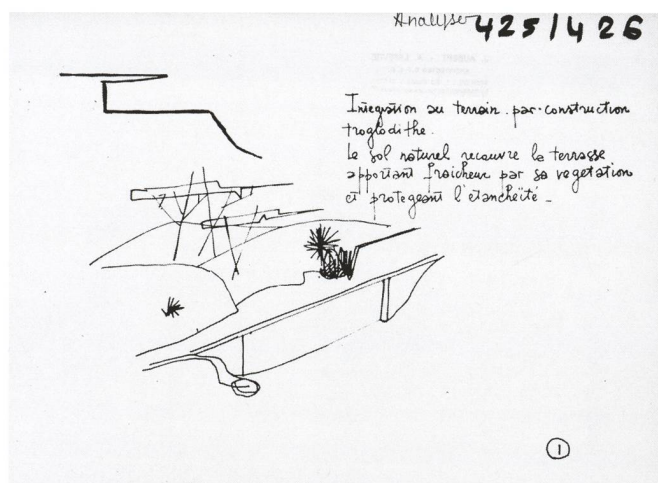 Analyser 425/426
Intégration au terrain par construction
troglodithe.
Le sol naturel recouvre la terrasse
apportant fraicheur par sa vegetation
et protegeant l'étancheïté _
1